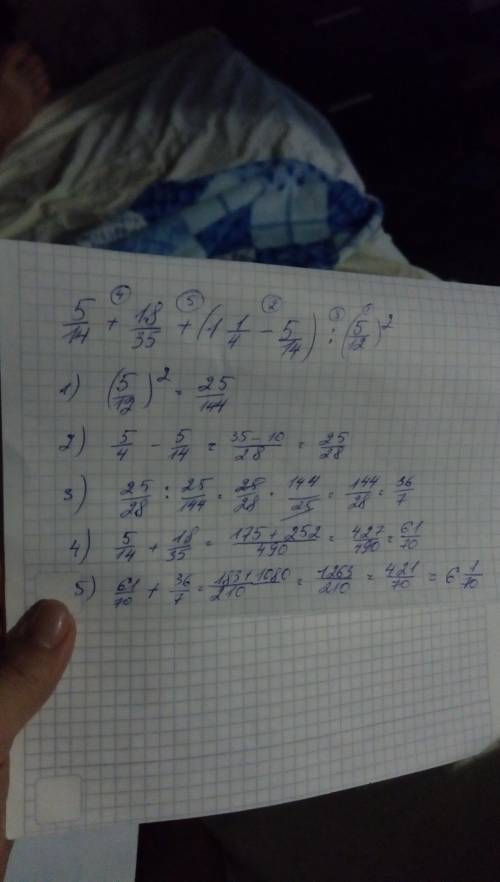 ④ ⑤ ② ③ ①
5/14 + 18/35 + (1 1/4 - 5/14) : (5/12)²
1) (5/12)² = 25/144
2) 5/4 - 5/14 = 35-10/28 = 25/28
3) 25/28 : 25/144 = 25/28 · 144/25 = 144/28 = 36/7
4) 5/14 + 18/35 = 175+252/490 = 427/490 = 61/70
5) 61/70 + 36/7 = 183+1080/210 = 1263/210 = 421/70 = 6 1/70